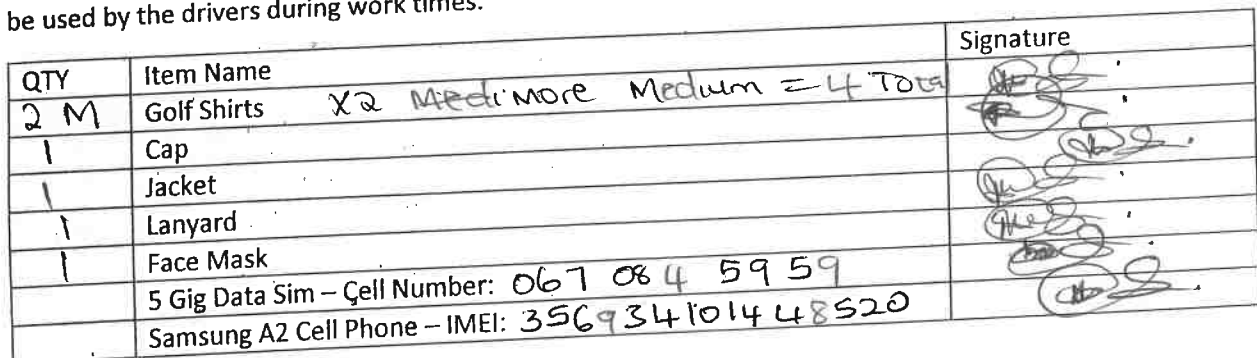 be used by the drivers during work times.
QTY Item Name Signature
2 M Golf Shirts X2 Medimore Medium = 4 Total
1 Cap
1 Jacket
1 Lanyard
1 Face Mask
5 Gig Data Sim – Cell Number: 067 084 5959
Samsung A2 Cell Phone – IMEI: 356934101448520